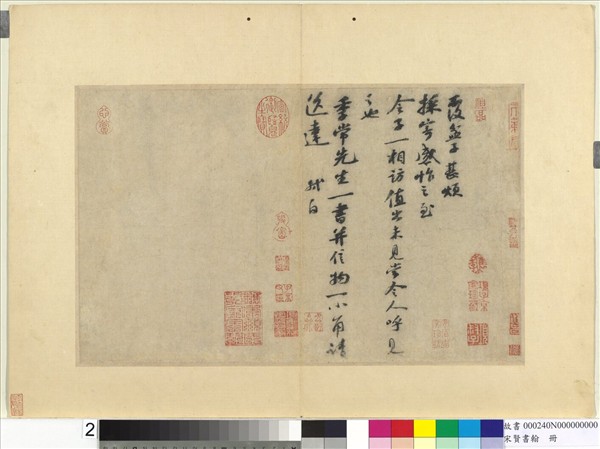 覆盆子甚煩
採寄感怍之至
令子一相訪值出未見當令人呼見
之也
季常先生一書并信物一小角請
送達 軾白
2
故書 000240N000000000
宋賢書翰 冊